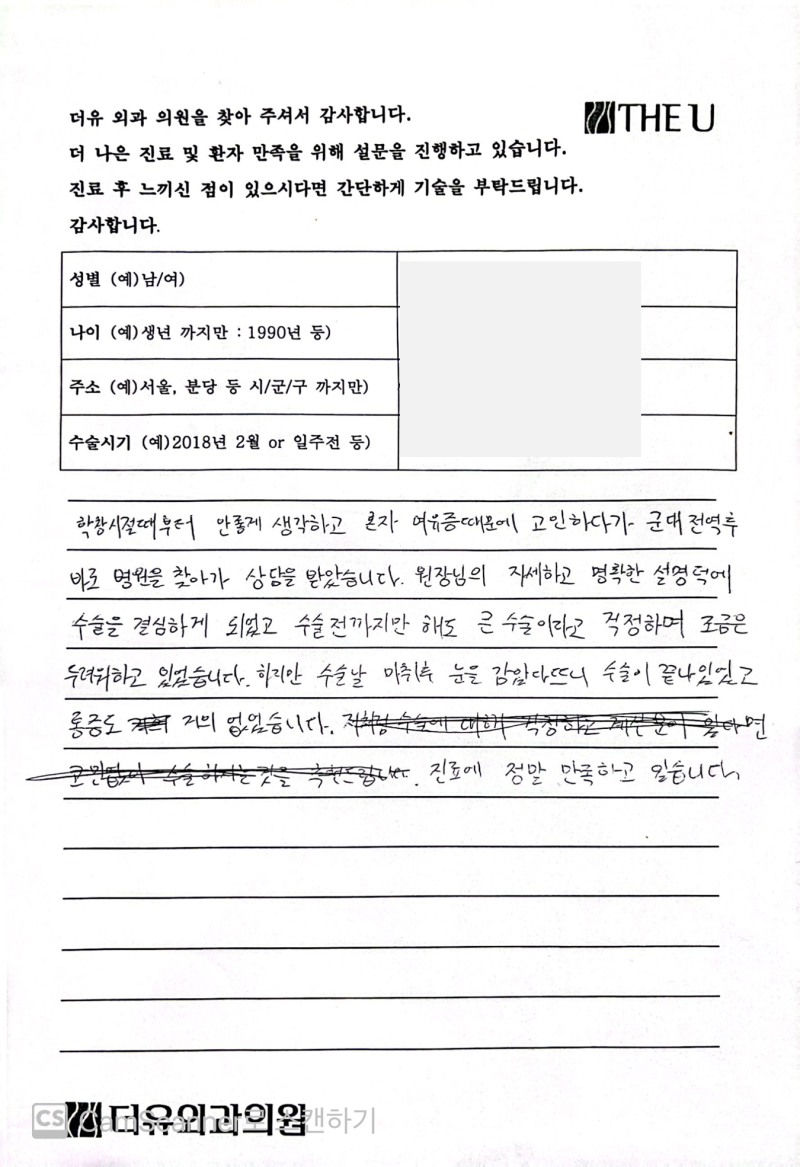 더유 외과 의원을 찾아 주셔서 감사합니다.
THE U
더 나은 진료 및 환자 만족을 위해 설문을 진행하고 있습니다.
진료 후 느끼신 점이 있으시다면 간단하게 기술을 부탁드립니다.
감사합니다.
성별 (예)남/여)
나이 (예)생년 까지만 : 1990년 등)
주소 (예)서울, 분당 등 시/군/구 까지만)
수술시기 (예)2018년 2월 or 일주전 등)
학창시절때부터 안좋게 생각하고 혼자 여유증때문에 고민하다가 군대 전역후
바로 병원을 찾아가 상담을 받았습니다. 원장님의 자세하고 명확한 설명덕에
수술을 결심하게 되었고 수술전까지만 해도 큰 수술이라고 걱정하며 조금은
두려워하고 있었습니다. 하지만 수술날 마취후 눈을 감았다뜨니 수술이 끝나있었고
통증도 거의 없었습니다. 저처럼 수술에 대해 걱정하고 계신 분이 있다면
고민없이 수술하시는것을 추천드립니다. 진료에 정말 만족하고 있습니다.
더유외과의원
CS CamScanner로 스캔하기